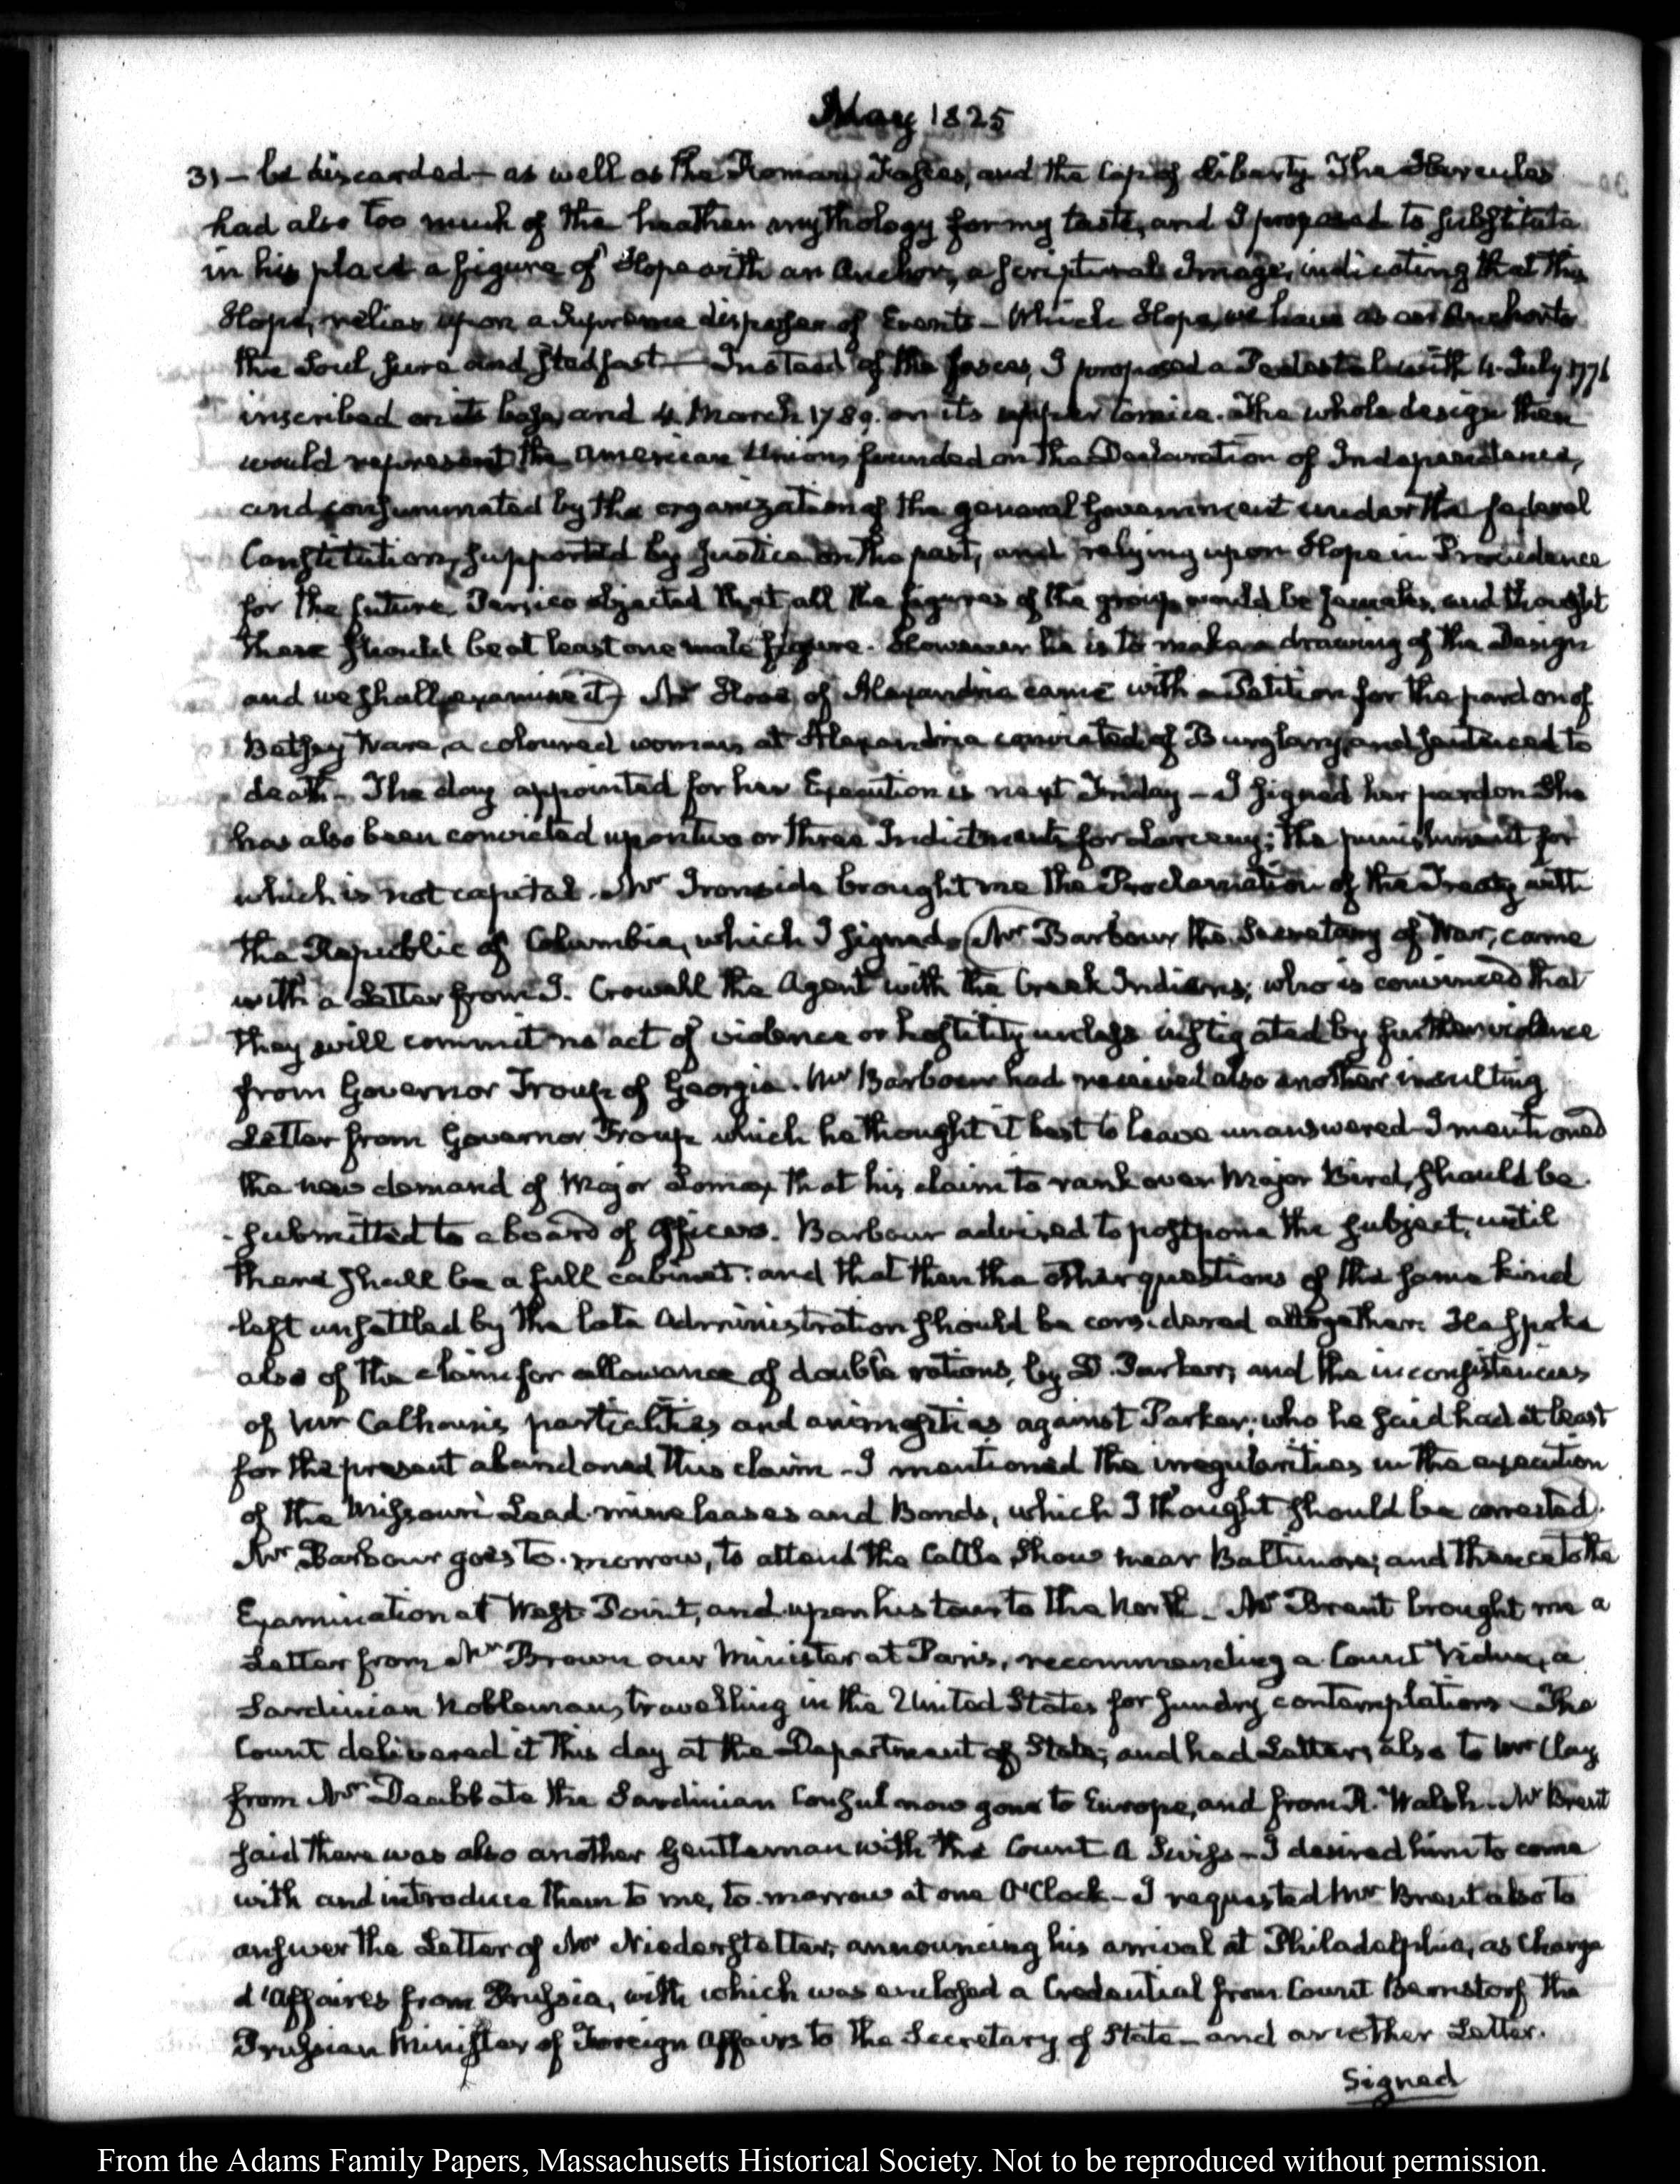 May 1825
31 — be discarded — as well as the Roman Fasces, and the Cap of Liberty. The Hercules
had also too much of the heathen mythology for my taste, and I proposed to substitute
in his place a figure of Hope with an Anchor, a scriptural Image, indicating that this
Hope, relies upon a Supreme disposer of Events — Which Hope, we have as an Anchor to
the Soul, sure and stedfast — Instead of the fasces, I proposed a Pedestal with 4. July 1776
inscribed on its base, and 4. March 1789. on its upper Cornice. The whole design then
would represent the American Union, founded on the Declaration of Independence,
and consummated by the organization of the general Government under the federal
Constitution, supported by Justice in the past, and relying upon Hope in Providence
for the future. Persico objected that all the figures of the group would be females, and thought
there should be at least one male figure. However he is to make a drawing of the Design
and we shall examine it) Mr Hooe of Alexandria came with a Petition for the pardon of
Betsey Ware, a coloured woman at Alexandria convicted of Burglary and sentenced to
death — The day appointed for her Execution is next Friday — I signed her pardon She
has also been convicted upon two or three Indictments for Larceny; the punishment for
which is not capital. Mr Ironside brought me the Proclamation of the Treaty with
the Republic of Columbia, which I signed. (Mr Barbour the Secretary of War, came
with a Letter from J. Crowell the Agent with the Creek Indians; who is convinced that
they will commit no act of violence or hostility unless instigated by further violence
from Governor Troup of Georgia. Mr Barbour had received also another insulting
Letter from Governor Troup which he thought it best to leave unanswered — I mentioned
the new demand of Major Lomax that his claim to rank over Major Bird, should be
submitted to a board of Officers. Barbour advised to postpone the subject, until
there shall be a full cabinet: and that then the other questions of the same kind
left unsettled by the late Administration should be considered altogether. He spoke
also of the claim for allowance of double rations, by D. Parker; and the inconsistencies
of Mr Calhoun's partialities and animosities against Parker; who he said had at least
for the present abandoned this claim — I mentioned the irregularities in the execution
of the Missouri Lead mine leases and Bonds, which I thought should be corrected.
Mr Barbour goes to-morrow, to attend the Cattle Show near Baltimore; and thence to the
Examination at West-Point, and upon his tour to the North — Mr Brent brought me a
Letter from Mr Brown our Minister at Paris, recommending a Count Vidua, a
Sardinian Nobleman, travelling in the United States for sundry contemplations — The
Count delivered it this day at the Department of State, and had Letters also to Mr Clay
from Mr Deabbate the Sardinian Consul now gone to Europe, and from R. Walsh. Mr Brent
said there was also another Gentleman with the Count A Swiss — I desired him to come
with and introduce them to me, to-morrow at one O'Clock — I requested Mr Brent also to
answer the Letter of Mr Niederstetter, announcing his arrival at Philadelphia, as Charge
d'Affaires from Prussia, with which was enclosed a Credential from Count Bernstorf the
Prussian Minister of Foreign Affairs to the Secretary of State — and another Letter.
Signed
From the Adams Family Papers, Massachusetts Historical Society. Not to be reproduced without permission.